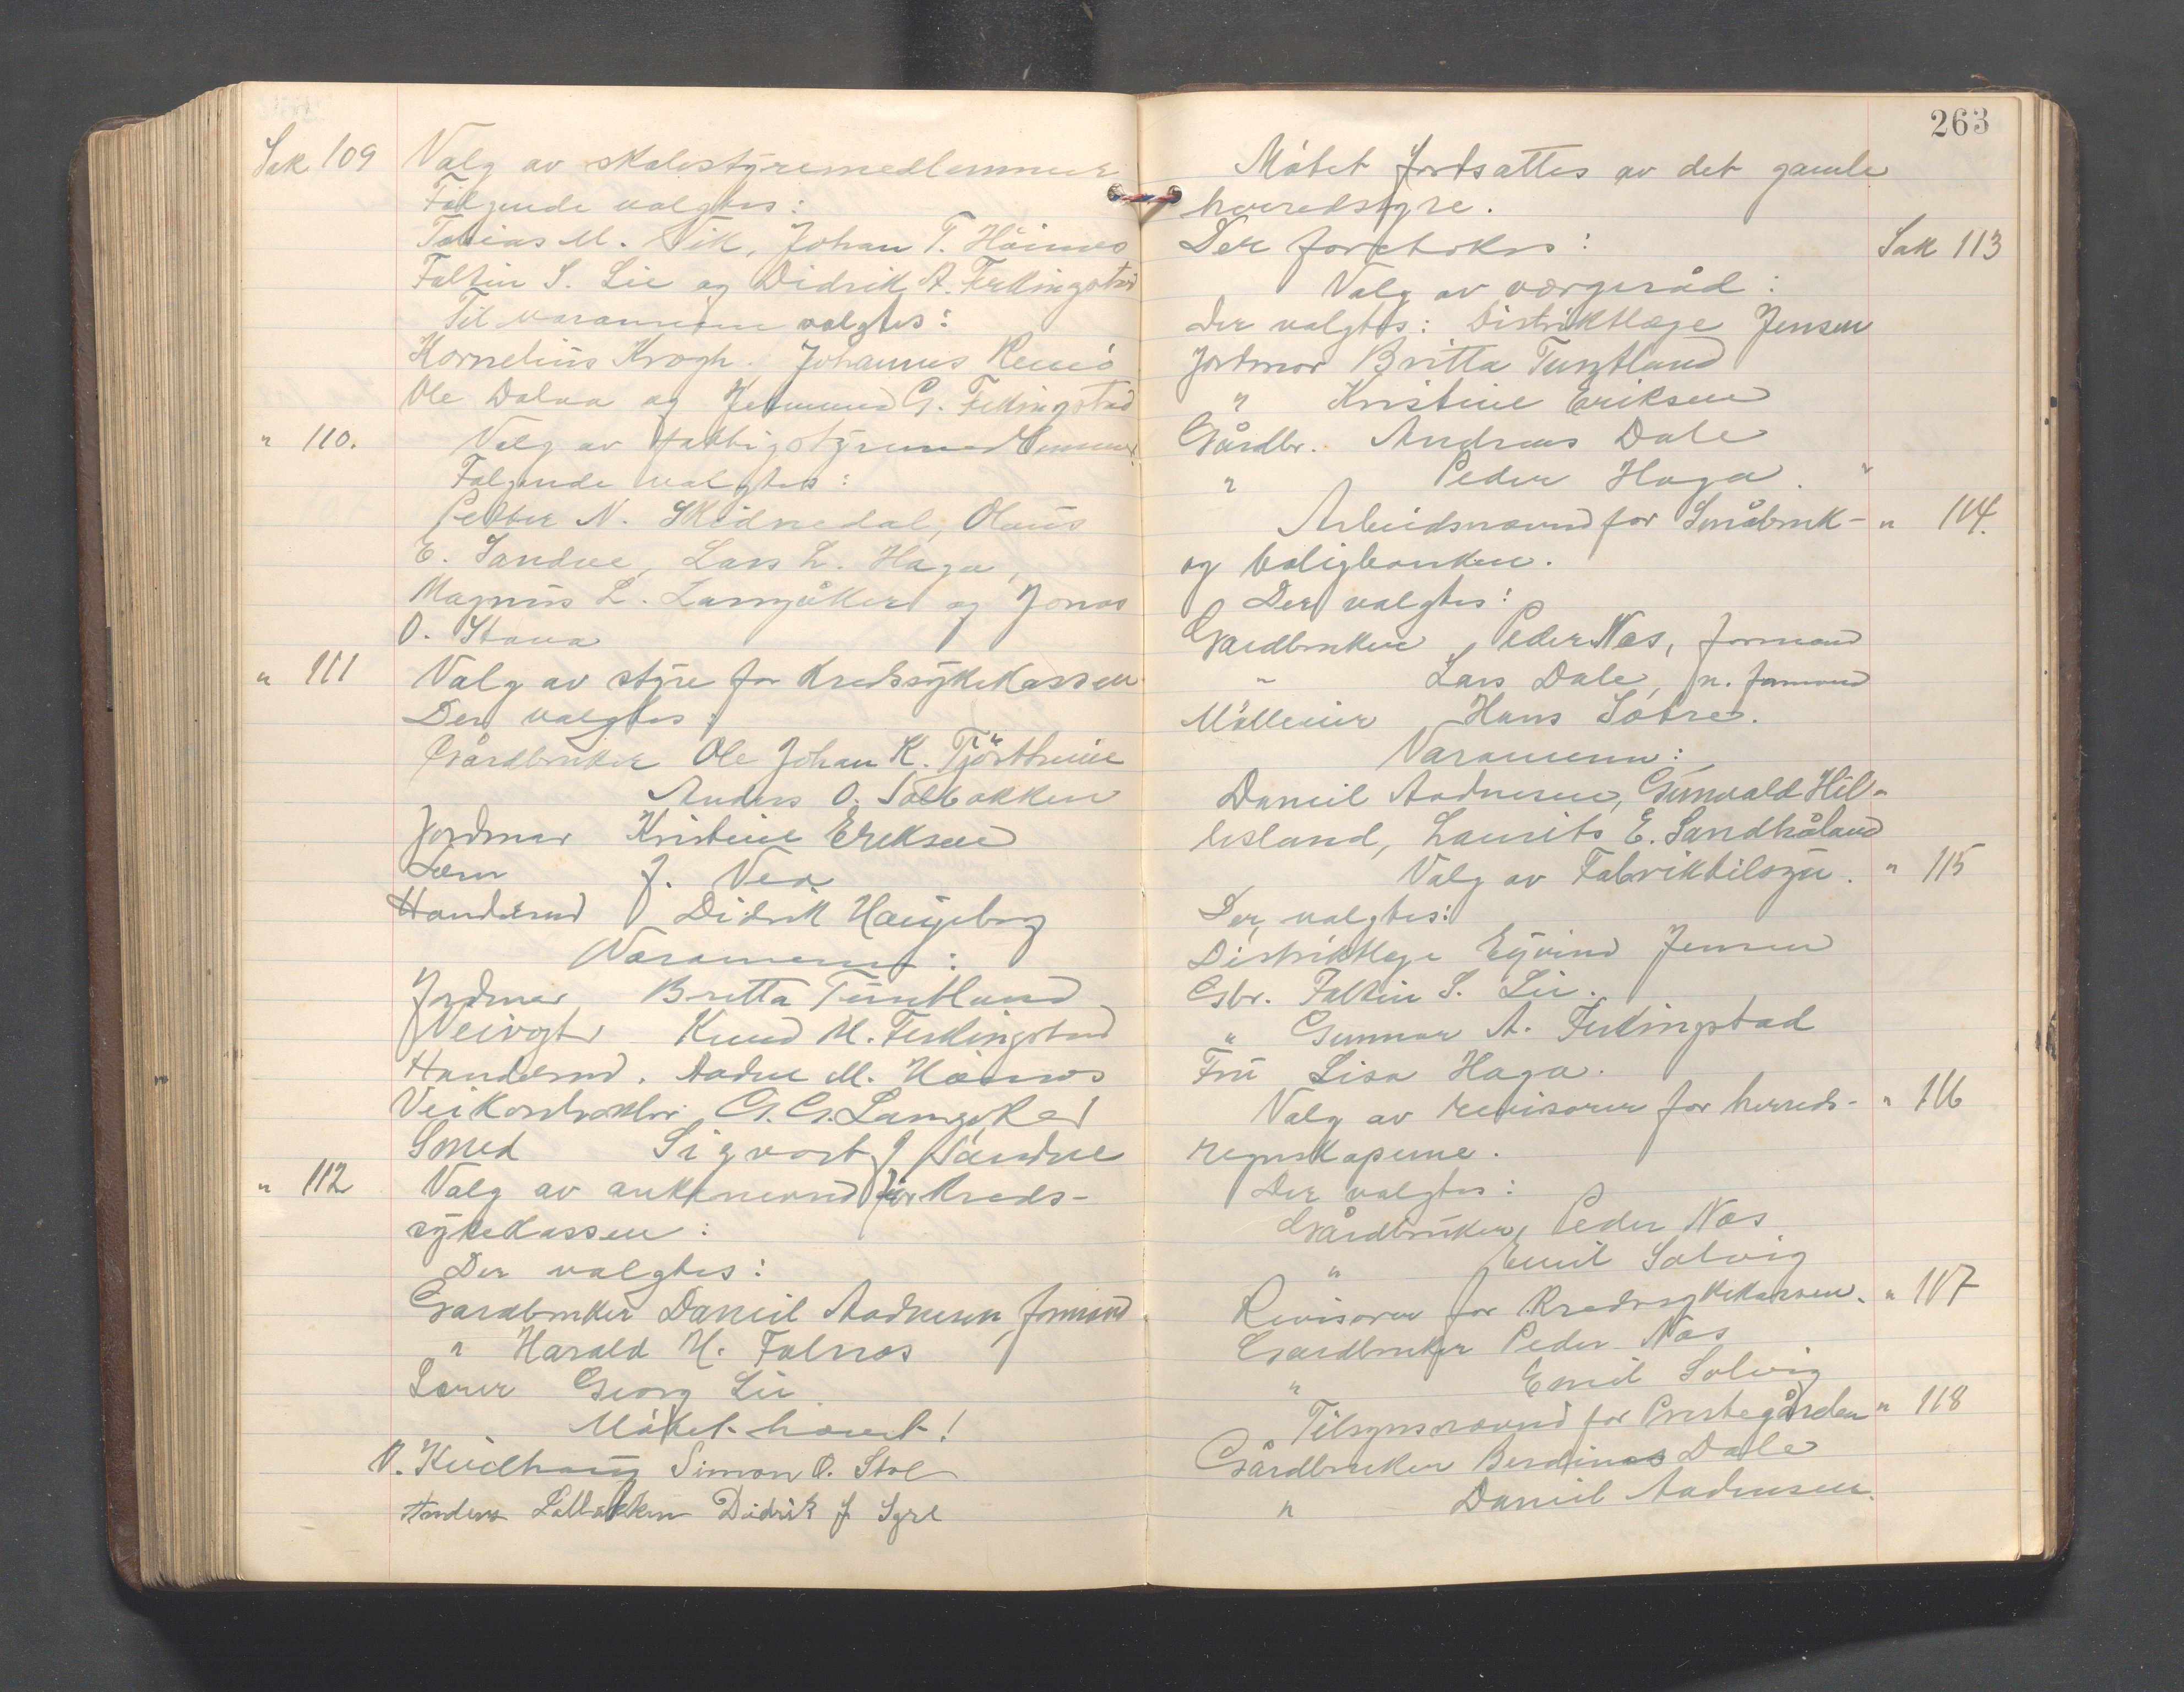 Sak 109 Valg av skolestyremedlemmer
Følgende valgtes:
Tobias M. Vik, Johan T. Höines
Faltin S. Lie og Didrik A. Ferkingstad
Til varamenn valgtes:
Kornelius Krogh, Johannes
Ole Dalva og G. Ferkingstad
" 110. Valg av fattigstyremedlemmer.
Følgende valgtes:
Petter N. Skidnedal, Olaus
E. Sandve, Lars L. Haga,
Magnus L. Langåker og Jonas
O. Stava
" 111 Valg av styre for Kredssykekassen
Der valgtes:
Gårdbruker Ole Johan K. Tjøstheim
" Anders O. Solbakken
Jordmor Kristine Eriksen
Lærer J. Vea
Handelsmd Didrik Haugeberg
Varamenn:
Jordmor Britta Tuntland
Veivogter Knud M. Ferkingstad
Handelsmd. Aadne M. Höines
Veikontroklør G. G. Langåker
Smed Sigvart J Sandve
" 112 Valg av ankenevnd for Kreds-
sykekassen:
Der valgtes:
Gardbruker Daniel Aadnesen, formand
" Harald H. Falnes
Lærer Georg Lie
Møtet hævet!
V. Kvilhaug Simon O. Stol
Anders Solbakken Didrik J Syre
263
Møtet fortsattes av det gamle
herredstyre.
Der foretokes: Sak 113
Valg av værgeråd:
Der valgtes: Distriktlæge Jensen
Jordmor Britta Tuntland
" Kristine Eriksen
Gårdbr. Andreas Dale
" Peder Haga. "
Arbeidsnævnd for Småbruk- " 114.
og boligbanken.
Der valgtes:
Gardbruker Peder Næs, formand
" Lars Dale, n. formand
Mølleeier Hans Sætre.
Varamenn:
Daniel Aadnesen, Gunvald Hil-
lesland, Laurits E. Sandhåland
Valg av Fabriktilsyn. " 115
Der valgtes:
Distriktlæge Eyvind Jensen
Gbr. Faltin S. Lie.
" Gunnar A. Ferkingstad
Fru Lisa Haga.
Valg av revisorer for herreds- " 116
regnskapene.
Der valgtes:
Gårdbruker Peder Næs
" Emil Solvig
Revisorer for Kredssykekassen. " 117
Gardbruker Peder Næs
" Emil Solvig
Tilsynsnævnd for Prestegården " 118
Gårdbruker Berdines Dale
" Daniel Aadnesen.